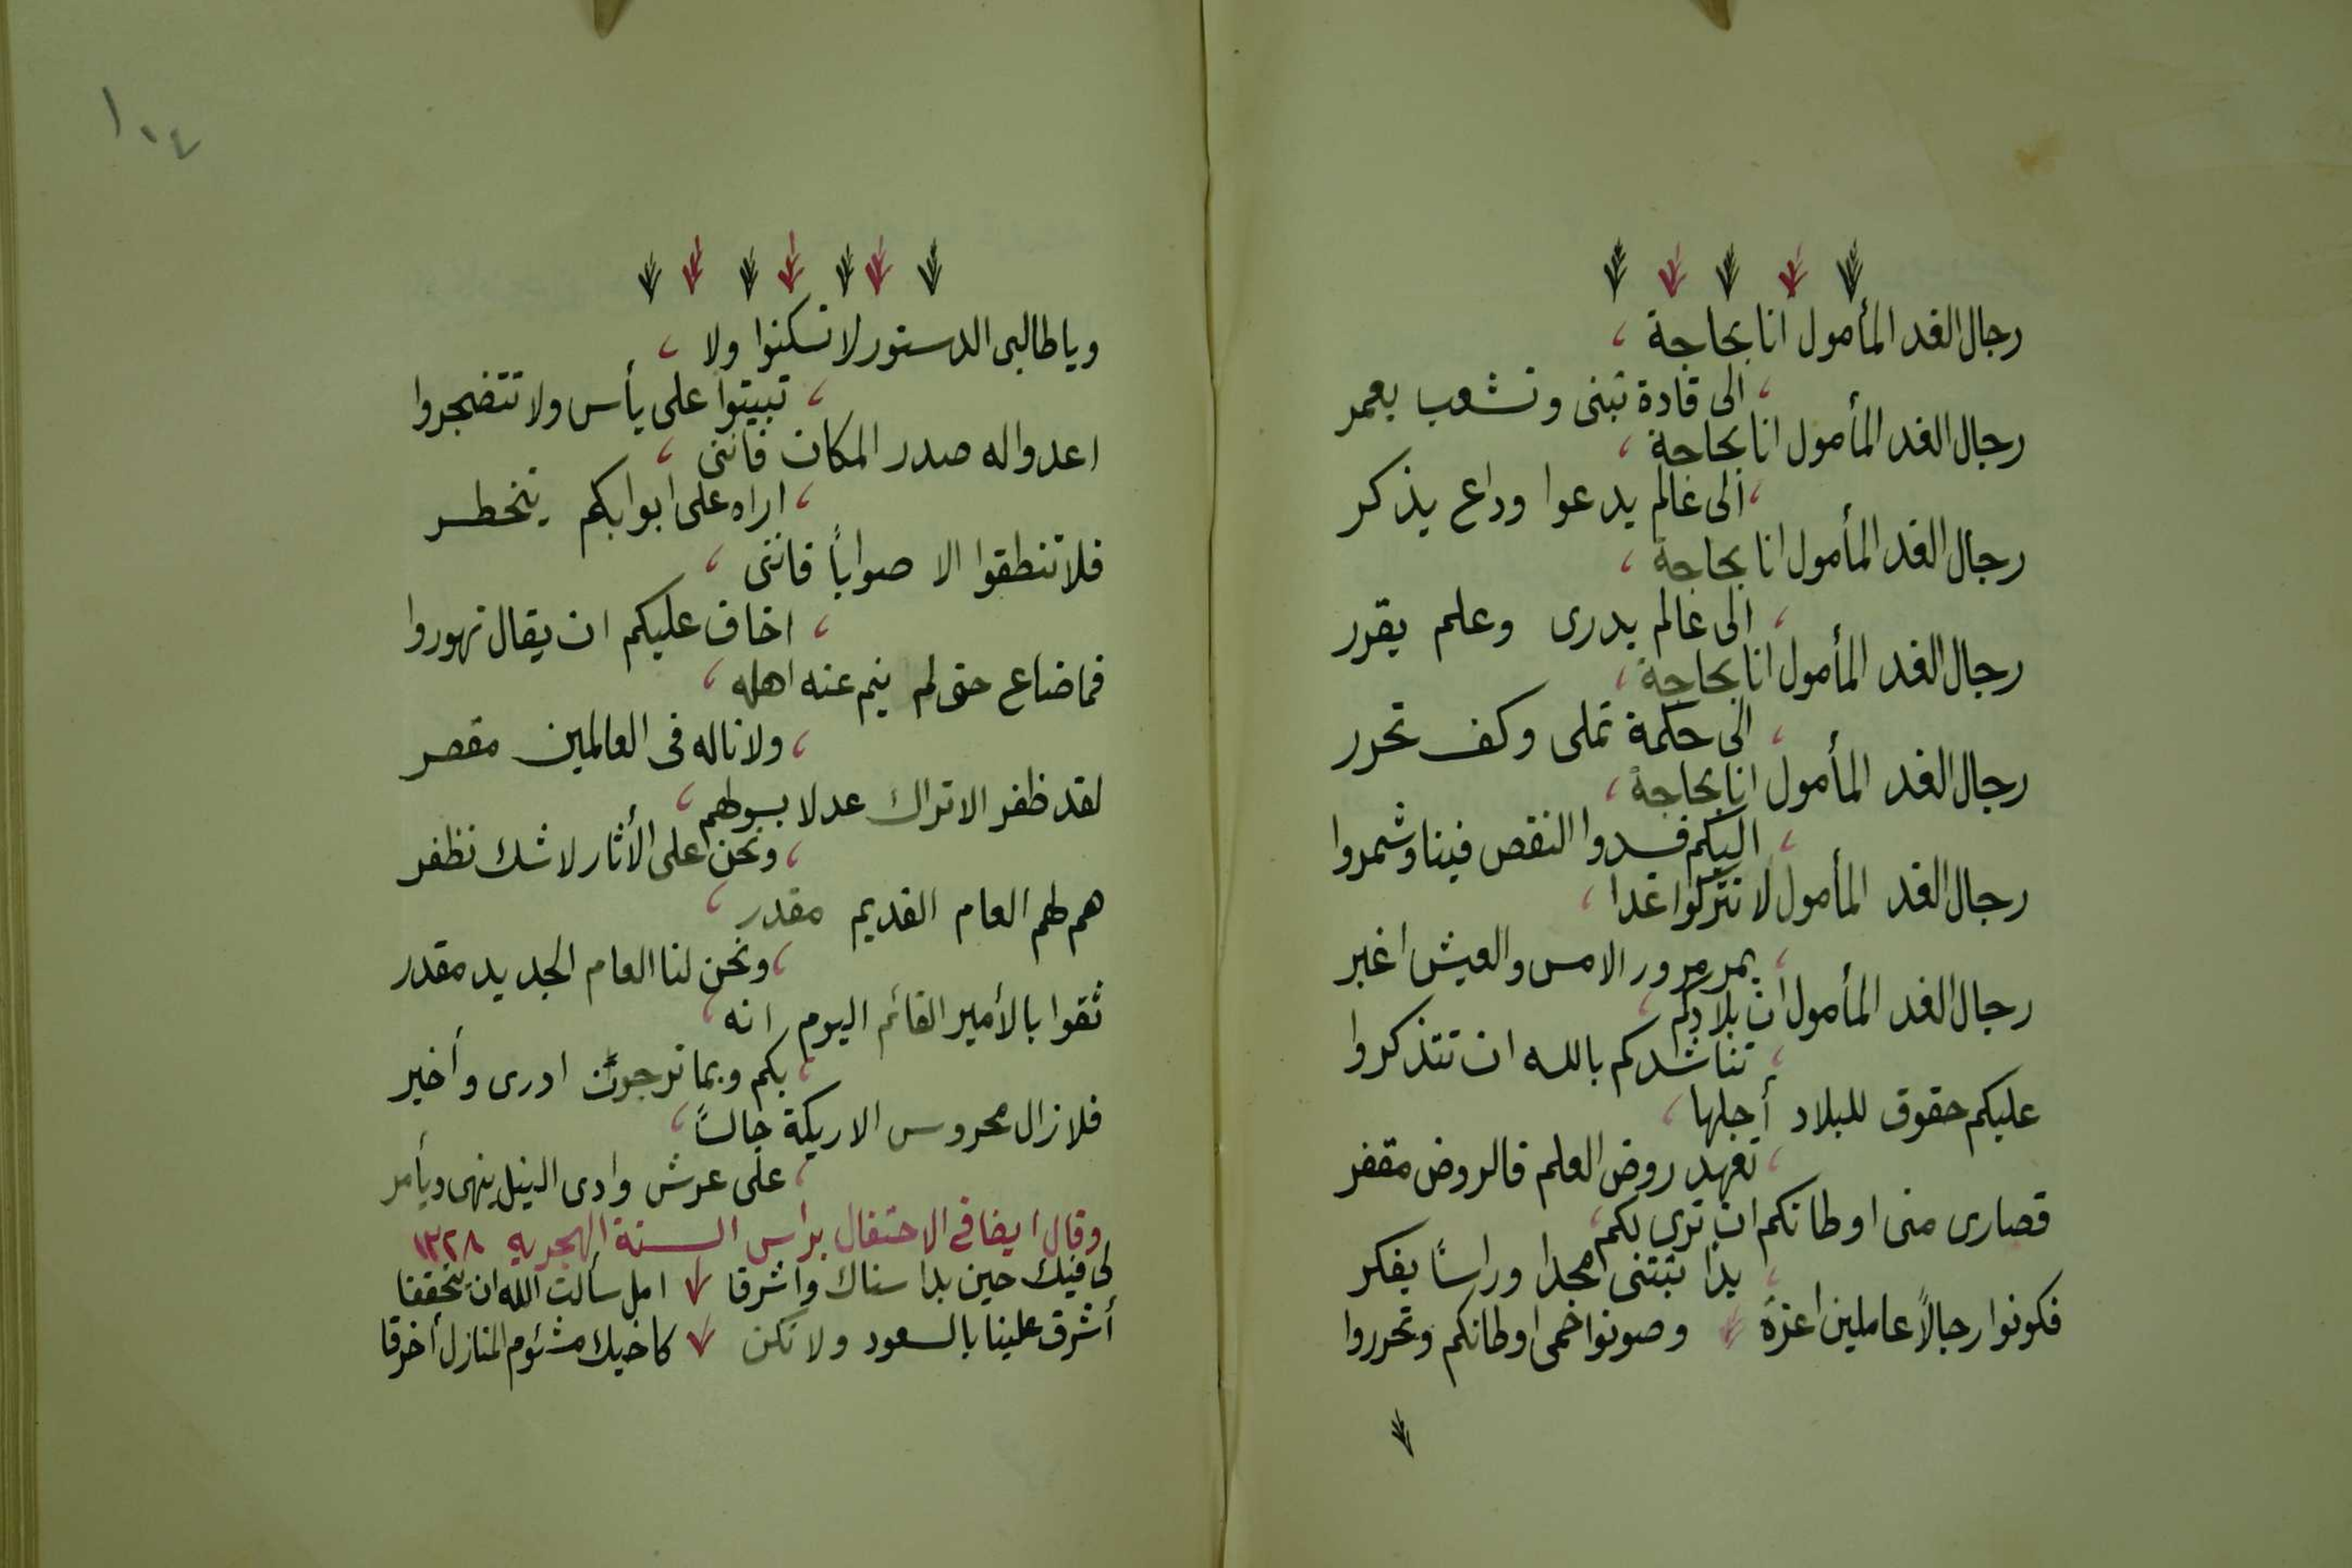 رجال الغد المأمول انا بحاجة
الى قادة تبنى وتشعب يعمر
رجال الغد المأمول انا بحاجة
الى عالم يدعوا وداع يذكر
رجال الغد المأمول انا بحاجة
الى عالم يدرى وعلم يقرر
رجال الغد المأمول انا بحاجة
الى حكمة تملى وكف تحرر
رجال الغد المأمول انا بحاجة
اليكم فسدوا النقص فينا وشمروا
رجال الغد المأمول لا تتركوا غدا
يمر مرور الامس والعيش اغبر
رجال الغد المأمول ان بلادكم
تناشدكم بالله ان تتذكروا
عليكم حقوق للبلاد أجلها
تعهد روض العلم فالروض مقفر
قصارى منى اوطانكم ان ترى بكم
يدا تبتنى مجدا وراسًا يفكر
فكونوا رجالاً عاملين اعزة وصونوا حمى اوطانكم وتحرروا
١٠٤
وياطالبى الدستور لا تسكنوا ولا
تبيتوا على يأس ولا تتضجروا
اعدوا له صدر المكان فاننى
اراه على ابوابكم يتخطر
فلا تنطقوا الا صوابًا فاننى
اخاف عليكم ان يقال تهوروا
فما ضاع حق لم ينم عنه اهله
ولا ناله فى العالمين مقصر
لقد ظفر الاتراك عدلا بسولهم
ونحن على الأثار لا شك نظفر
هم لهم العام القديم مقدر
ونحن لنا العام الجديد مقدر
ثقوا بالأمير القائم اليوم انه
بكم وبما ترجون ادرى وأخبر
فلا زال محروس الاريكة جالسًا
على عرش وادى النيل ينهى ويأمر
وقال ايضا فى الاحتفال براس السنة الهجريه ١٣٢٨
لى فيك حين بدا سناك واشرقا امل سألت الله ان يتحققا
أشرق علينا بالسعود ولا تكن كاخيك مشئوم المنازل أخرقا